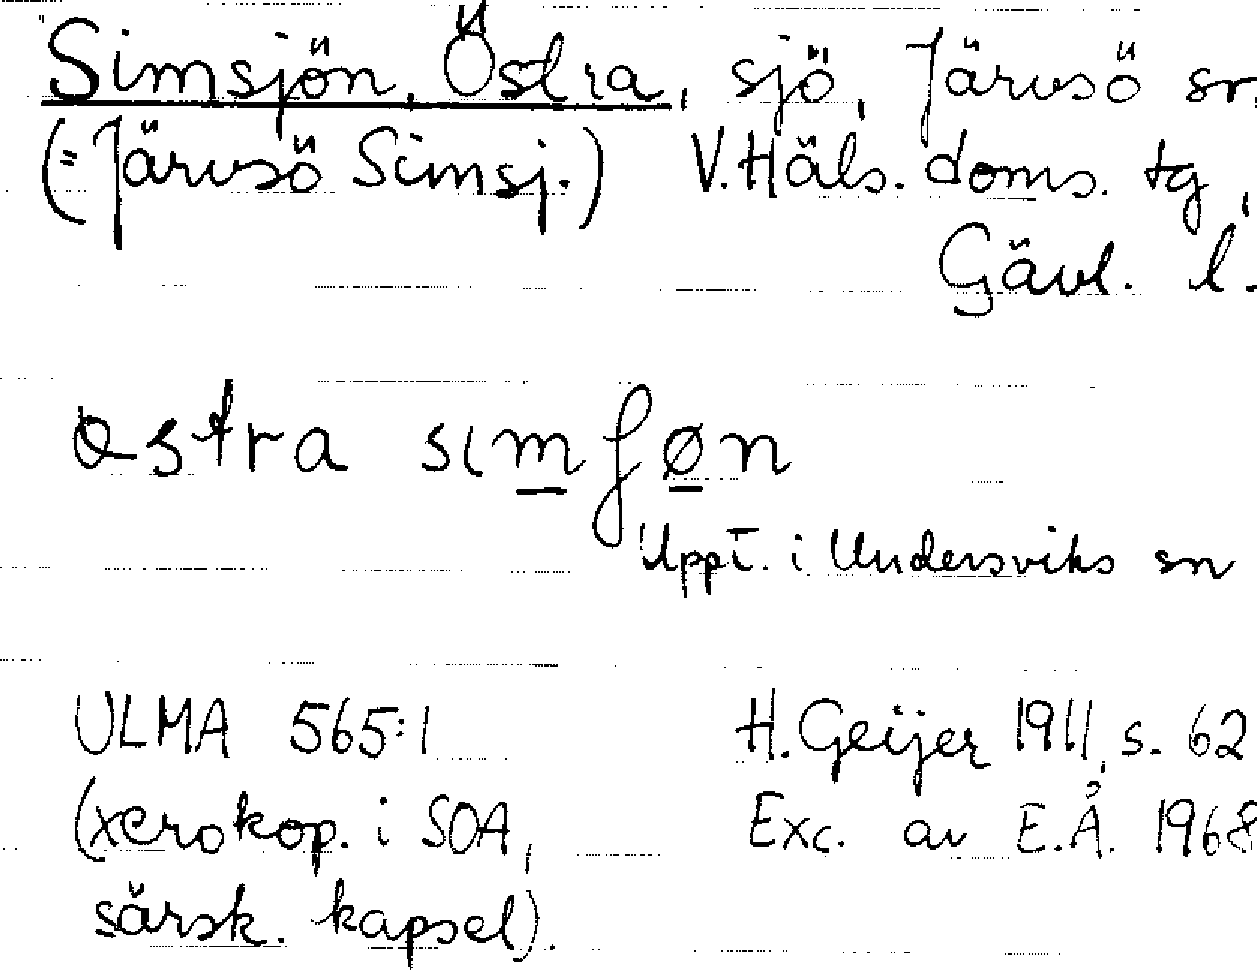 Simsjön, Östra, sjö, Järvsö sn,
(= Järvsö Simsj.) V. Häls. doms. tg,
Gävl. l.
østra simʃøn
Uppt. i Undersviks sn
ULMA 565:1 H. Geijer 1911, s. 62
(xerokop. i SOA, Exc. av E.Å. 1968
särsk. kapsel).